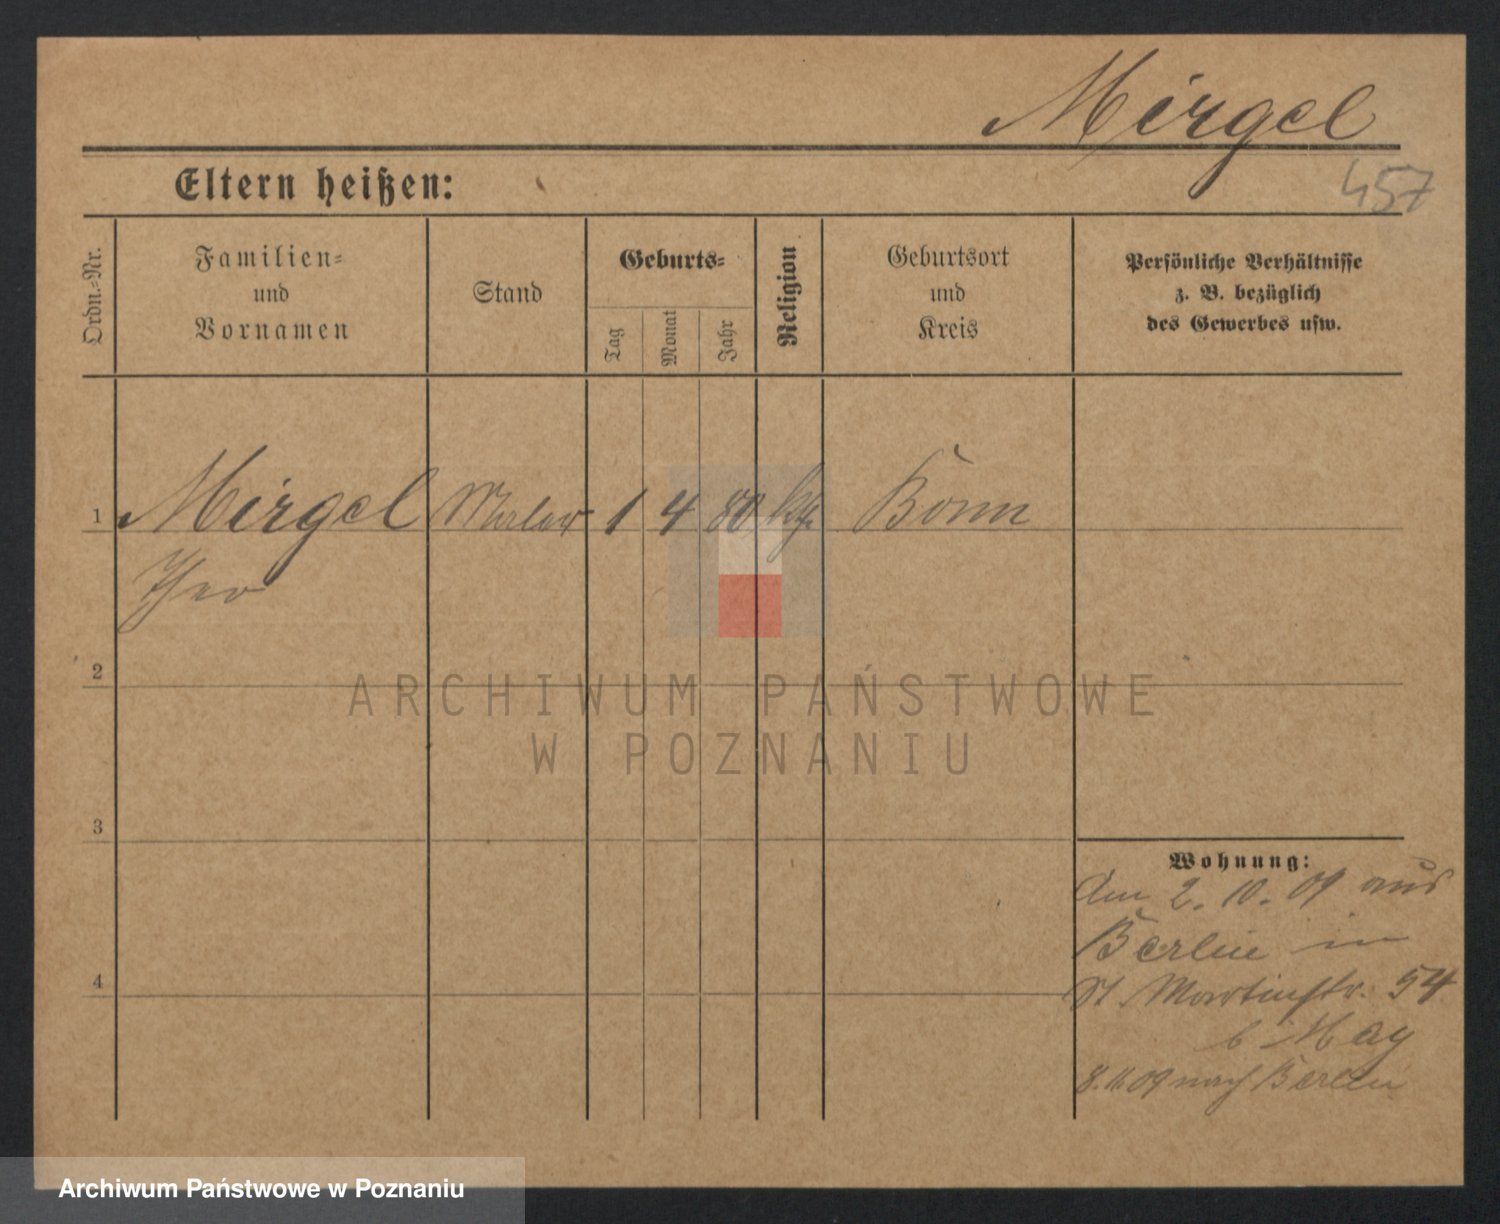 Mirgel
457
Eltern heißen:
Ordn.-Nr.
Familien-
und
Vornamen
Stand
Geburts-
Tag
Monat
Jahr
Religion
Geburtsort
und
Kreis
Persönliche Verhältnisse
z. B. bezüglich
des Gewerbes usw.
1 Mirgel Maler 1 4 80 kg. Bonn
Theo
2
3
4
Wohnung:
Am 2. 10. 09 aus
Berlin in
St Martinstr. 54
b May
8.11.09 nach Berlin
ARCHIWUM PAŃSTWOWE
W POZNANIU
Archiwum Państwowe w Poznaniu